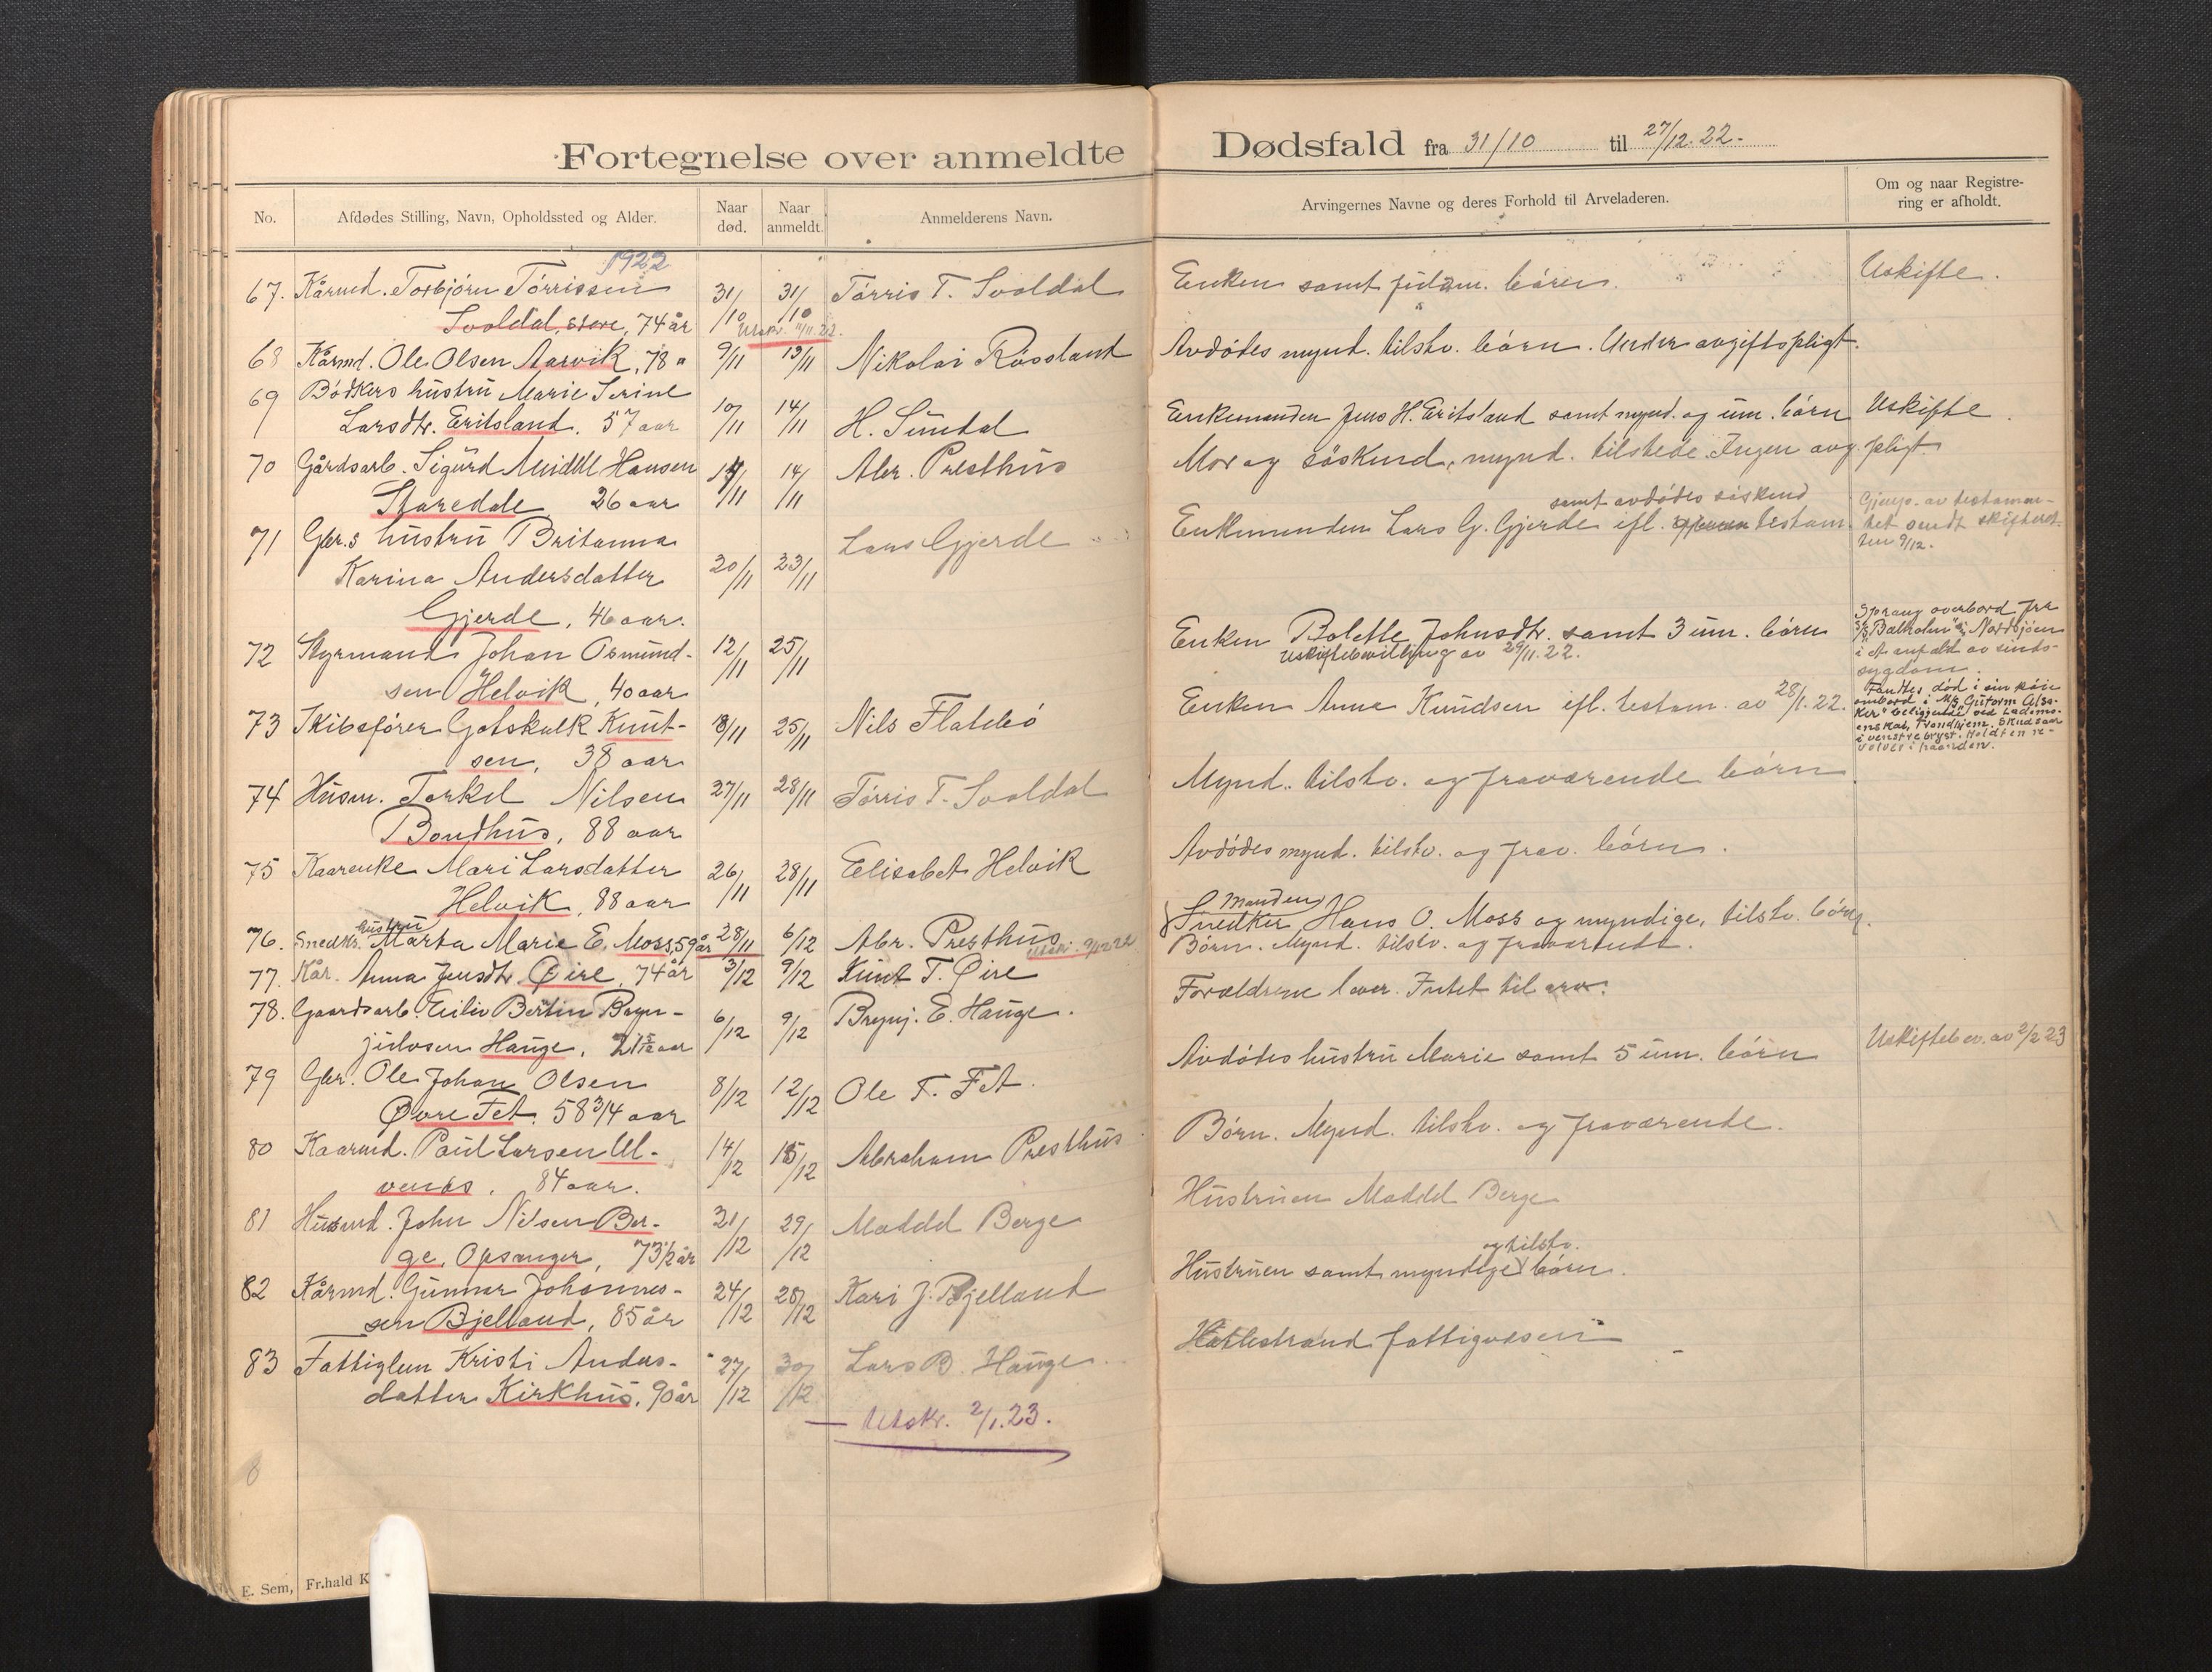 Fortegnelse over anmeldte Dødsfald fra 31/10 til 27/12.22.-
No.
Afdødes Stilling, Navn, Opholdssted og Alder.
Naar død.
Naar anmeldt.
Anmelderens Navn.
Arvingernes Navne og deres Forhold til Arveladeren.
Om og naar Registrering er afholdt.
1922
67. Kårmd. Torbjørn Tørrissen 31/10 31/10 Tørris T. Svoldal Enken samt børn. Uskifte.
Svoldal, store, 74 år
Utskr. 11/11.22.
68 Kårmd. Ole Olsen Aarvik, 78 " 9/11 13/11 Nikolai Røssland Avdødes mynd. tilstv. børn. Under avgiftspligt.
69 Bødkers hustru Marie Serine
Larsdtr. Eritsland. 57 aar 10/11 14/11 H. Sundal Enkemanden Jens H. Eritsland samt mynd. og um. børn Uskifte.
70 Gårdsarb. Sigurd Meidell Hansen 14/11 14/11 Abr. Presthus Mor og søskend, mynd. tilstede. Ingen avg.pligt.
Staredale 26 aar
71 Gbr.s hustru Britanna
samt avdødes søskend
Lars Gjerde Enkemanden Lars G. Gjerde ifl. testam.
Gjenp. av testamentet sendt skifteretten 9/12.
Karina Andersdatter 20/11 23/11
Gjerde, 46 aar.
72 Styrmand Johan Osmund- 12/11 25/11 Enken Bolette Johnsdtr. samt 3 um. børn
sen Helvik, 40 aar
Uskiftebevilling av 29/11.22.
Sprang overbord fra
S/S "Balholm" i Nordsjøen
i et anfald av sinds-
sygdom.
73 Skibsfører Gotskalk Knut- 18/11 25/11 Nils Flatebø Enken Anna Knudsen ifl. testam. av 28/1.22.
sen, 38 aar
Fandtes død i sin køie
ombord i M/S "Guttorm
beliggende ved Ladems-
Trondhjem. Skudsaar
i venstre bryst. Holdt en re-
volver i haanden.
74 Husm. Torkel Nilsen 27/11 28/11 Tørris T. Svoldal Mynd. tilstv. og fraværende børn.
Bondhus, 88 aar
75 Kaarenke Mari Larsdatter 26/11 28/11 Elisabet Helvik Avdødes mynd. tilstv. og frav. børn.
Helvik, 88 aar
76. Snedkr. hustru Marta Marie E. Moss, 59 år 28/11 6/12 Abr. Presthus Manden Snedker Hans O. Moss og myndige, tilstv. børn.
Utskr. 9/12 22
77. Kår. Anna Jensdtr Øire, 74 år 3/12 9/12 Knut T. Øire Børn. Mynd. tilstv. og fraværende.
78. Gaardsarb. Eiliv Bertin Bryn- 6/12 9/12 Brynj. E. Hauge. Forældrene lever. Intet til arv.
julvsen Hauge, 21 aar
79 Gbr. Ole Johan Olsen 8/12 12/12 Ole T. Fet. Avdødes hustru Marie samt 5 um. børn Uskiftebev. av 2/2 23
Øvre Fet. 58 3/4 aar
80 Kaarmd. Paul Larsen Ul- 14/12 15/12 Abraham Presthus Børn. Mynd. tilstv. og fraværende.
venes. 84 aar.
81 Husmd. John Nilsen Ber- 21/12 29/12 Maddel Berge Hustruen Maddel Berge
ge, Opsanger, 73 1/2 år
82 Kårmd. Gunnar Johannes- 24/12 28/12 Kari J. Bjelland Hustruen samt myndige og tilstv. børn.
sen Bjelland, 85 år
83 Fattiglem Kristi Anders- 27/12 30/12 Lars B. Hauge Hatlestrand fattigvæsen
datter Kirkhus. 90 år
Utskr. 2/1.23.
E. Sem, Fr.hald